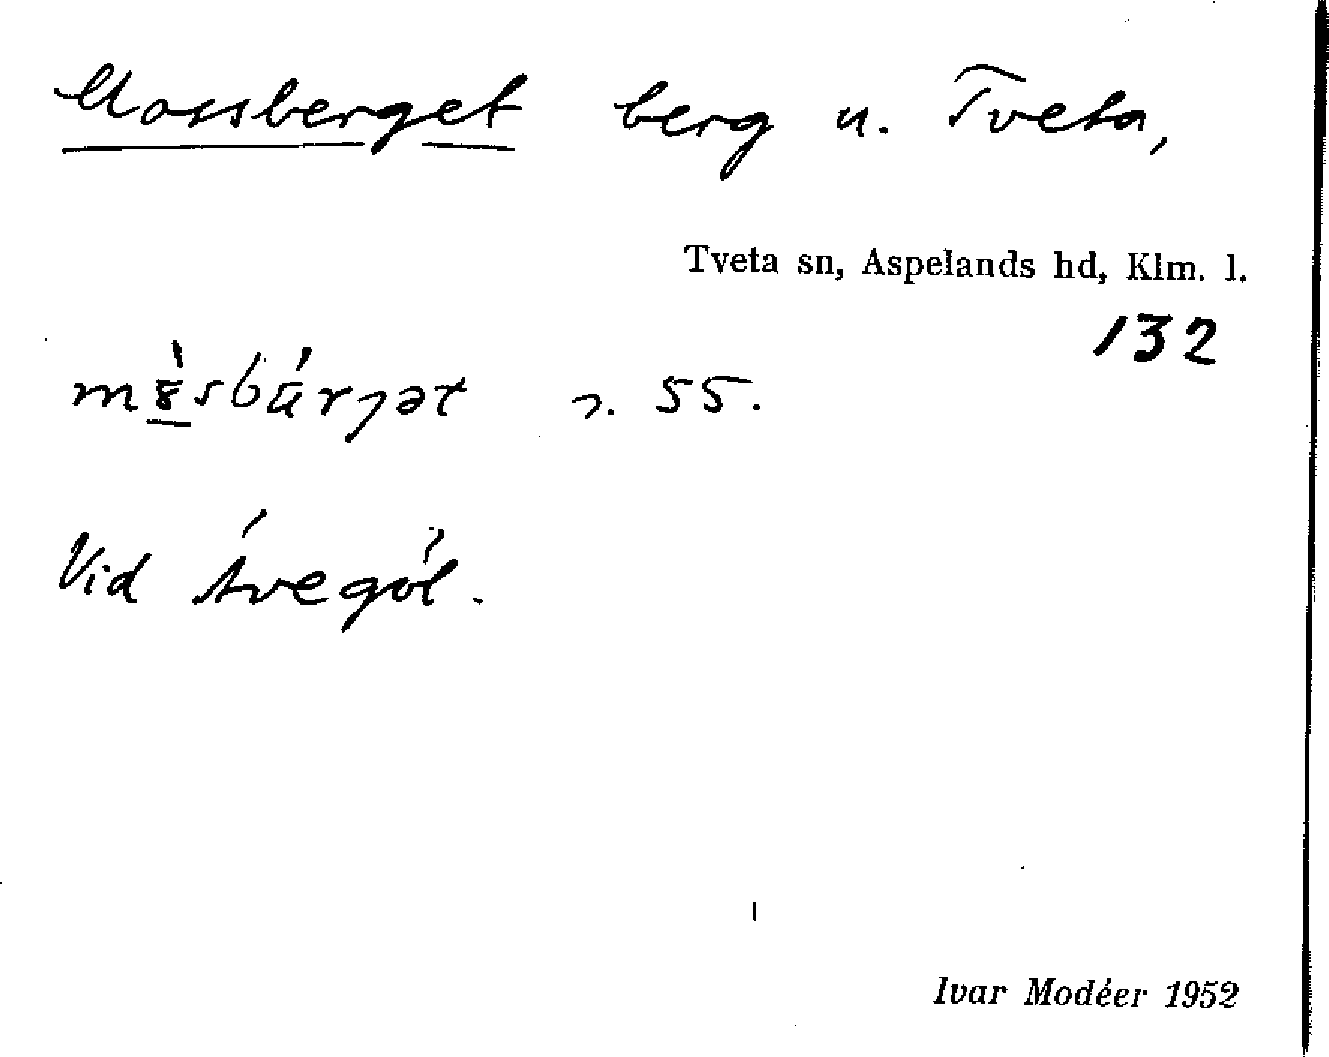 Mossberget berg u. Tveta,
Tveta sn, Aspelands hd, Klm. l.
132
55.
Vid
Ivar Modéer 1952